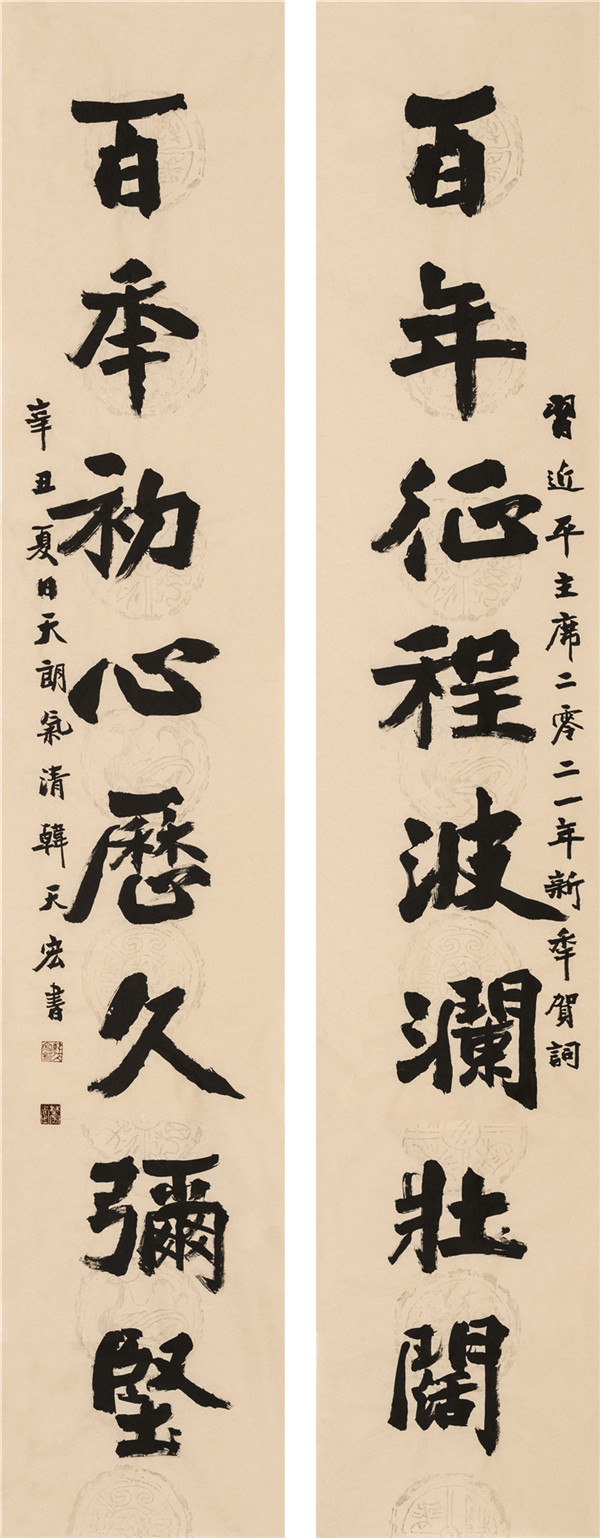 習近平主席二零二一年新秊賀詞
百年征程波瀾壯闊
百秊初心歷久彌堅
辛丑夏日天朗氣清韓天宏書